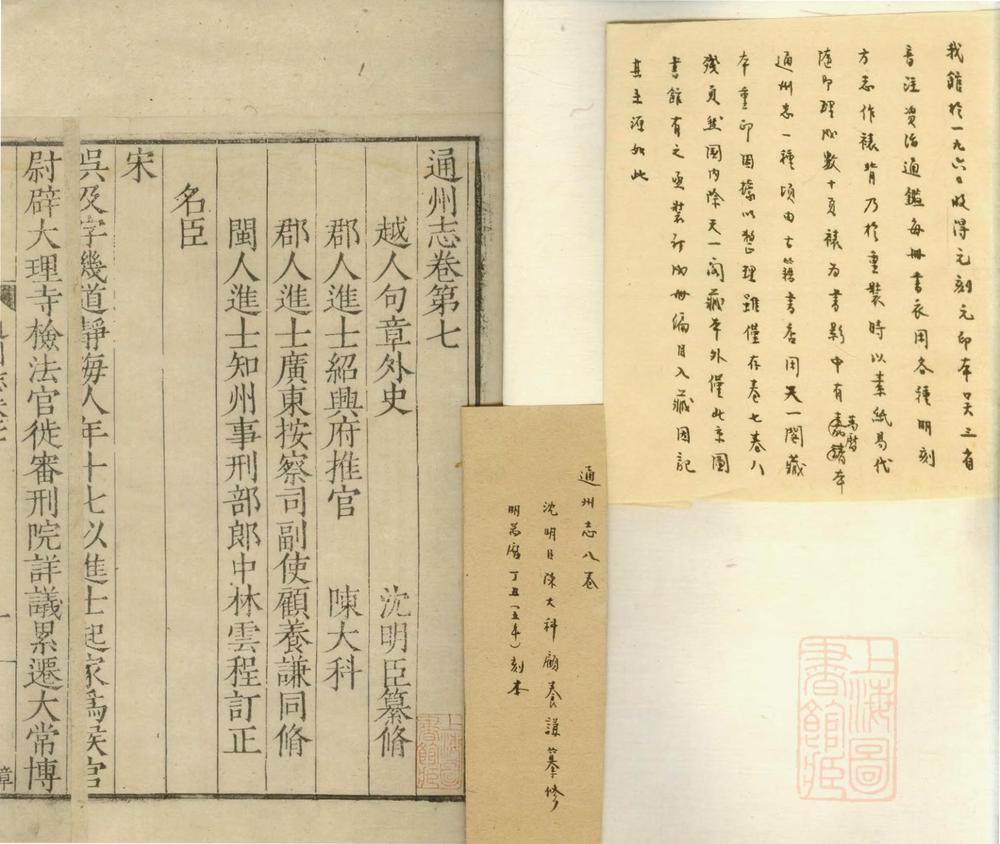 我館於一九六〇收得元刻元印本胡三省
音注資治通鑑每冊書衣用各種明刻
方志作裱背乃於重裝時以素紙易代
隨即理成數十頁裱為書影中有萬曆本
通州志一種頃由古籍書店用天一閣藏
本重印因據以整理雖僅存卷七卷八
殘頁然國内除天一閣藏本外僅北京圖
書館有之亟裝訂成冊編目入藏因記
其来源如此
通州志八卷
沈明臣陳大科顧養謙纂修
明萬曆丁丑(五年)刻本
通州志卷第七
越人句章外史 沈明臣纂脩
郡人進士紹興府推官 陳大科
郡人進士廣東按察司副使顧養謙同脩
閩人進士知州事刑部郎中林雲程訂正
名臣
宋
吳及字幾道靜海人年十七以進士起家為候官
尉辟大理寺檢法官徙審刑院詳議累遷大常博
上海圖書館藏
上海圖書館藏